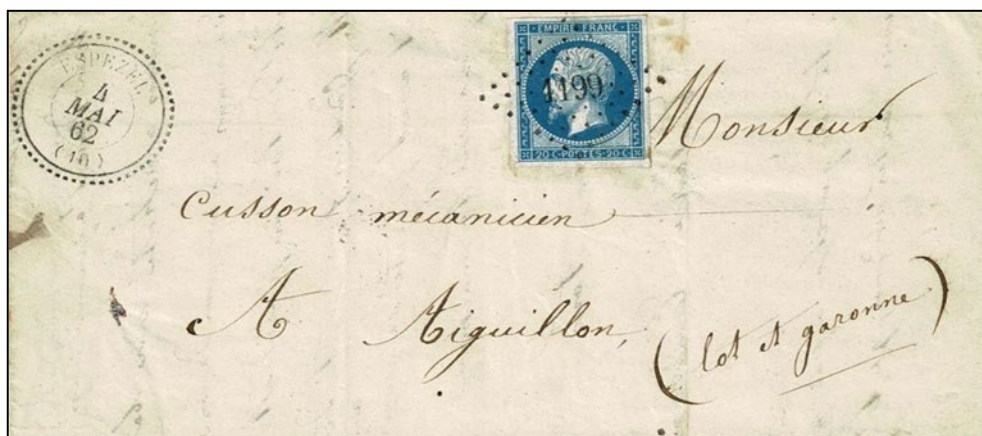 ESPEZEL
4
MAI
62
(10)
EMPIRE FRANC
1199
20 C POSTES 20 C
Monsieur
Cusson mécanicien
A Aiguillon,
(lot et garonne)